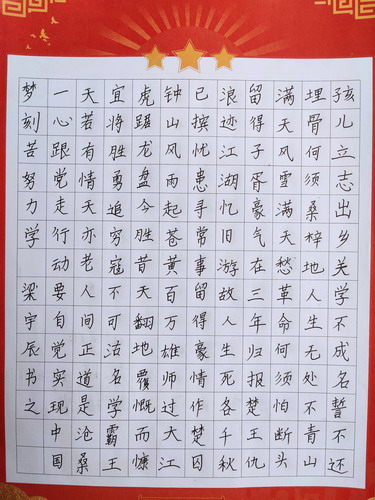 孩儿立志出乡关学不成名誓不还
埋骨何须桑梓地人生无处不青山
满天风雪满天愁革命何须怕断头
留得子胥豪气在三年归报楚王仇
浪迹江湖忆旧游故人生死各千秋
已摈忧患寻常事留得豪情作楚囚
钟山风雨起苍黄百万雄师过大江
虎踞龙盘今胜昔天翻地覆慨而慷
宜将胜勇追穷寇不可沽名学霸王
天若有情天亦老人间正道是沧桑
一心跟党走行动要自觉实现中国
梦刻苦努力学 梁宇辰书之